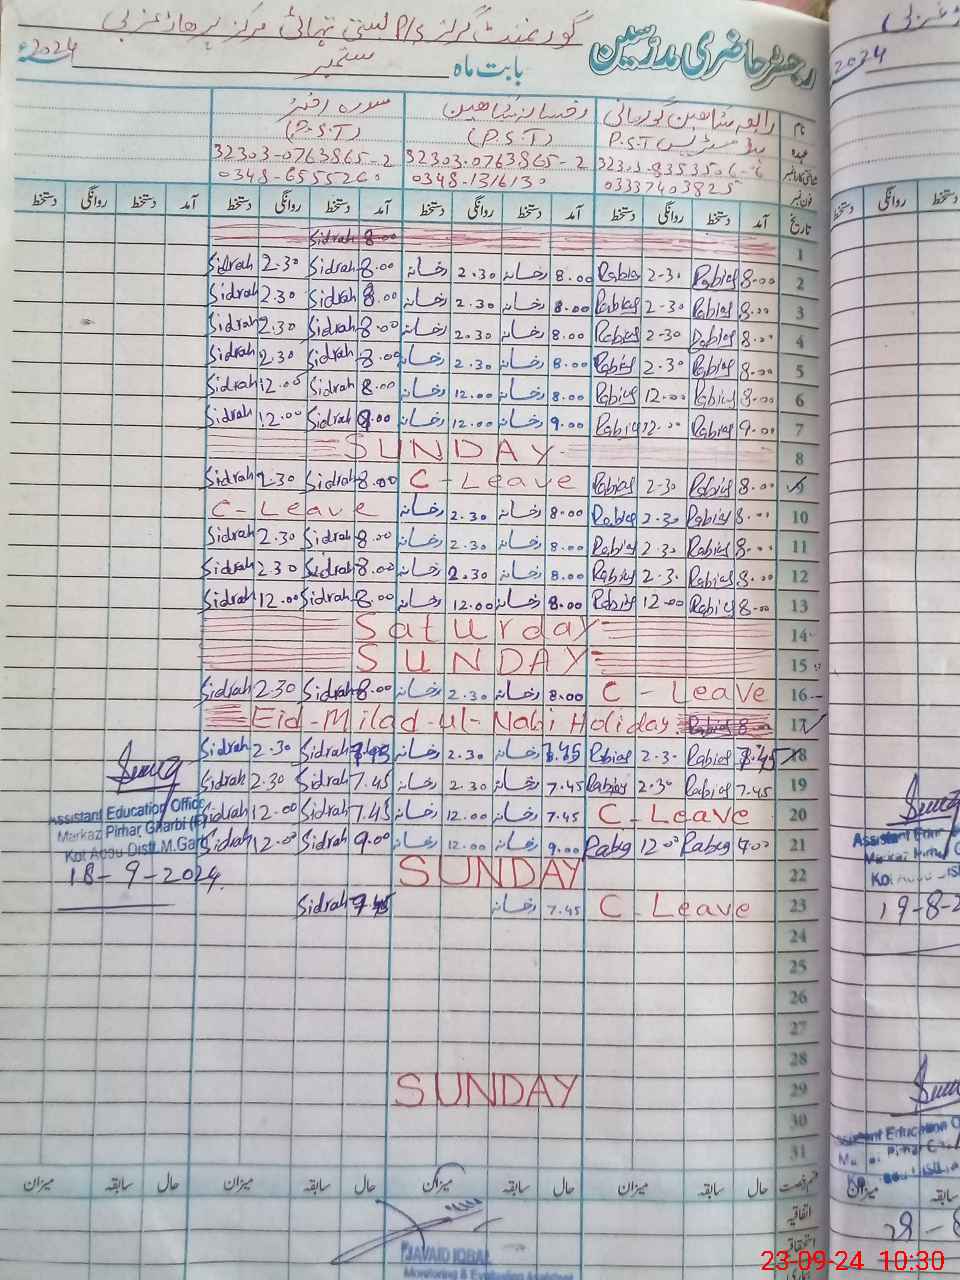 رجسٹر حاضری مدرسین
گورنمنٹ گرلز P/S بستی تہرائی مرکز پرھاڑ غربی
بابت ماہ ستمبر 2024ء
نام رابعہ شاہین گورمانی رخسانہ شاہین سدرہ رفیق
عہدہ ہیڈ مسٹریس P.S.T (P.S.T) (P.S.T)
32303-0763865-2 32303-0763865-2
فون نمبر 03337403825 0348-1316130 0348-6555260
تاریخ آمد دستخط روانگی دستخط آمد دستخط روانگی دستخط آمد دستخط روانگی دستخط آمد دستخط روانگی دستخط
1 Sidrah 8.00
2 8.00 Rabia 2-30 Rabia 8.00 رخسانہ 2.30 رخسانہ 8.00 Sidrah 2.30 Sidrah
3 8.00 Rabia 2-30 Rabia 8.00 رخسانہ 2.30 رخسانہ 8.00 Sidrah 2.30 Sidrah
4 8.00 Rabia 2-30 Rabia 8.00 رخسانہ 2.30 رخسانہ 8.00 Sidrah 2.30 Sidrah
5 8.00 Rabia 2-30 Rabia 8.00 رخسانہ 2.30 رخسانہ 8.00 Sidrah 2.30 Sidrah
6 8.00 Rabia 12.00 Rabia 8.00 رخسانہ 12.00 رخسانہ 8.00 Sidrah 12.00 Sidrah
7 9.00 Rabia 12.00 Rabia 9.00 رخسانہ 12.00 رخسانہ 9.00 Sidrah 12.00 Sidrah
8 SUNDAY
9 8.00 Rabia 2-30 Rabia C-Leave 8.00 Sidrah 2.30 Sidrah
10 8.00 Rabia 2.30 Rabia 8.00 رخسانہ 2.30 رخسانہ C-Leave
11 8.00 Rabia 2-30 Rabia 8.00 رخسانہ 2.30 رخسانہ 8.00 Sidrah 2.30 Sidrah
12 8.00 Rabia 2-30 Rabia 8.00 رخسانہ 2.30 رخسانہ 8.00 Sidrah 2.30 Sidrah
13 8-00 Rabia 12-00 Rabia 8.00 رخسانہ 12.00 رخسانہ 8.00 Sidrah 12.00 Sidrah
14 Saturday
15 SUNDAY
16 C-Leave 8.00 رخسانہ 2.30 رخسانہ 8.00 Sidrah 2.30 Sidrah
17 Eid-Milad-ul-Nabi Holiday. Rabia 8.00
18 7.45 Rabia 2.30 Rabia 7.45 رخسانہ 2.30 رخسانہ 7.45 Sidrah 2.30 Sidrah
19 7.45 Rabia 2.30 Rabia 7.45 رخسانہ 2.30 رخسانہ 7.45 Sidrah 2.30 Sidrah
20 C-Leave 7.45 رخسانہ 12.00 رخسانہ 7.45 Sidrah 12.00 Sidrah
21 9.00 Rabia 12.00 Rabia 9.00 رخسانہ 12.00 رخسانہ 9.00 Sidrah 12.00 Sidrah
22 SUNDAY
23 C-Leave 7.45 رخسانہ 7.45 Sidrah
24
25
26
27
28
29 SUNDAY
30
31
Assistant Education Office
Markaz Pirhar Gharbi (F)
Kot Addu Distt M.Garh
18-9-2024
قسم رخصت حال سابقہ میزان حال سابقہ میزان حال سابقہ میزان حال سابقہ میزان
اتفاقیہ
استحقاقی
JAVAID IQBAL
Monitoring & Evaluation Assistant
2024
روانگی دستخط
19-8-2
میزان سابقہ
23-09-24 10:30